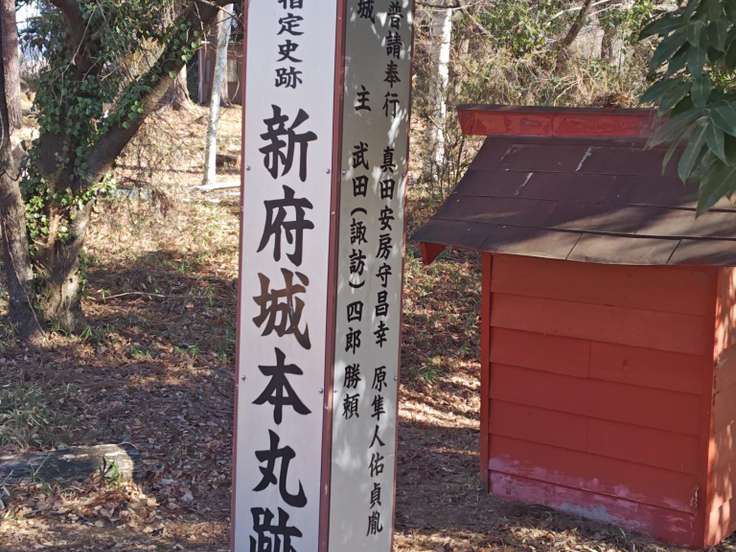 指定史跡
新府城本丸跡
普請奉行 真田安房守昌幸 原隼人佑貞胤
城主 武田(諏訪)四郎勝頼